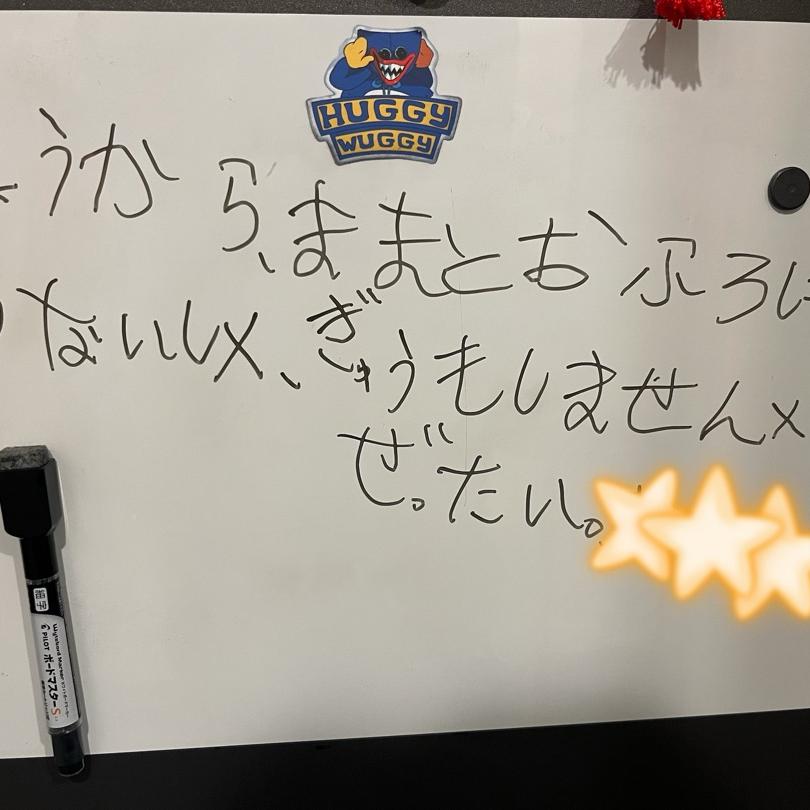 HUGGY
WUGGY
ょうから、ままとおふろに
ないし×、ぎゅうもしません×
ぜ。たい。
細字
Whiteboard Marker
PILOT ボードマスターS